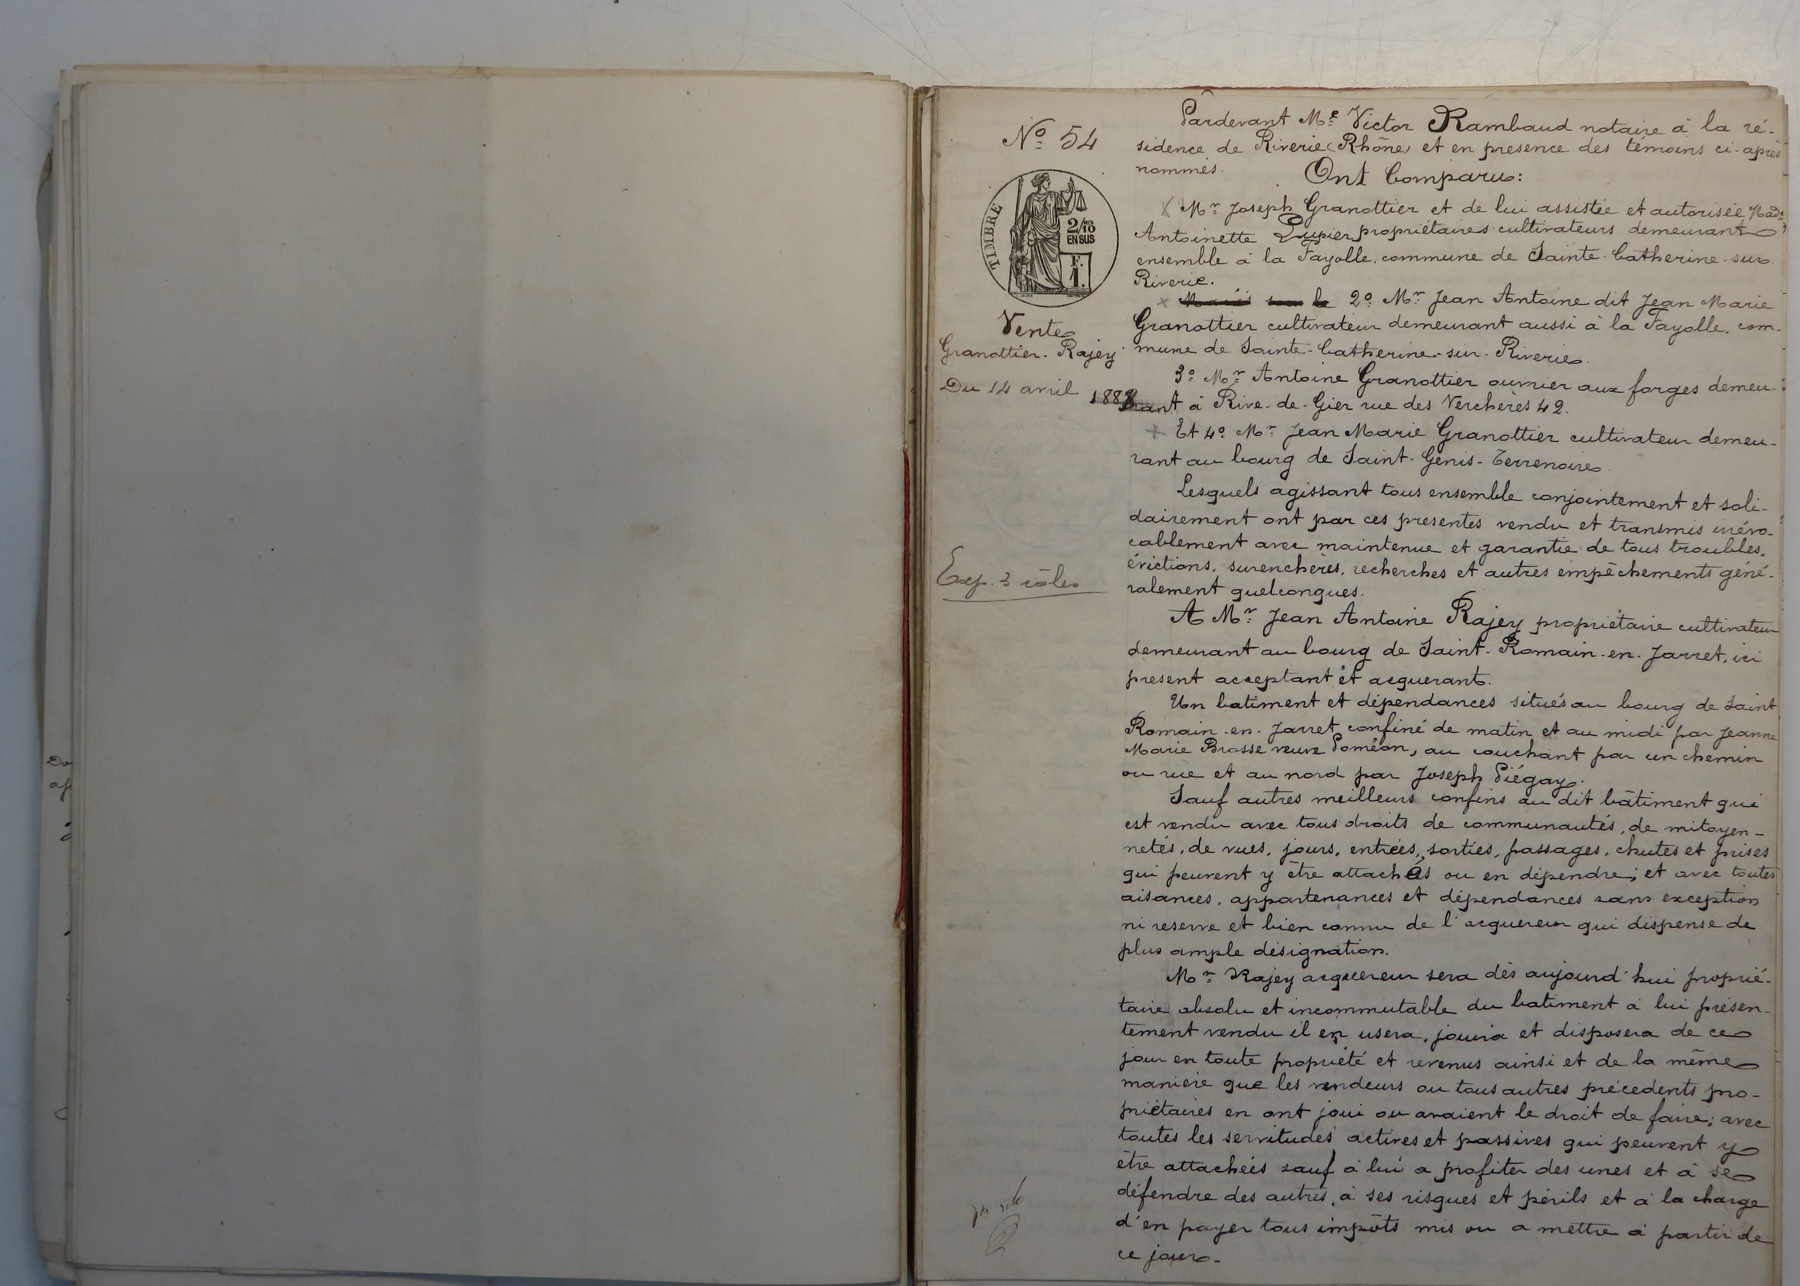 Nº 54
TIMBRE
2/10
EN SUS
F.
1.
Vente
Granottier - Rajey
Du 14 avril 188
Exp. 3 rôles
Pardevant Mᵉ Victor Rambaud notaire à la ré-
sidence de Riverie (Rhône) et en presence des témoins ci-après
nommés.
Ont Comparu:
Mʳ Joseph Granottier et de lui assistée et autorisée Mad
Antoinette Lupier propriétaires cultivateurs demeurant
ensemble à la Fayolle, commune de Sainte-Catherine-sur
Riverie.
2º Mʳ Jean Antoine dit Jean Marie
Granottier cultivateur demeurant aussi à la Fayolle, com-
mune de Sainte-Catherine-sur-Riverie
3º Mʳ Antoine Granottier ouvrier aux forges demeu-
rant à Rive-de-Gier rue des Verchères 42.
Et 4º Mʳ Jean Marie Granottier cultivateur demeu-
rant au bourg de Saint-Genis-Terrenoire
Lesquels agissant tous ensemble conjointement et soli-
dairement ont par ces presentes vendu et transmis irrévo-
cablement avec maintenue et garantie de tous troubles,
évictions, surenchères, recherches et autres empêchements géné-
ralement quelconques.
A Mʳ Jean Antoine Rajey propriétaire cultivateur
demeurant au bourg de Saint-Romain-en-Jarret, ici
présent acceptant et acquerant.
Un batiment et dépendances situés au bourg de Saint
Romain-en-Jarret confiné de matin et au midi par Jeanne
Marie Brosse veuve Poméon, au couchant par un chemin
ou rue et au nord par Joseph Piégay.
Sauf autres meilleurs confins au dit bâtiment qui
est vendu avec tous droits de communautés, de mitoyen-
netés, de vues, jours, entrées, sorties, passages, chutes et prises
qui peuvent y être attachés ou en dépendre; et avec toutes
aisances, appartenances et dépendances sans exception
ni reserve et bien connu de l'acquereur qui dispense de
plus ample désignation.
Mʳ Rajey acquereur sera dès aujourd'hui proprié-
taire absolu et incommutable du batiment à lui présen-
tement vendu il en usera, jouira et disposera de ce
jour en toute propriété et revenus ainsi et de la même
manière que les vendeurs ou tous autres précedents pro-
priétaires en ont joui ou avaient le droit de faire; avec
toutes les servitudes actives et passives qui peuvent y
être attachées sauf à lui a profiter des unes et à se
défendre des autres, à ses risques et périls et à la charge
d'en payer tous impôts mis ou a mettre à partir de
ce jour.